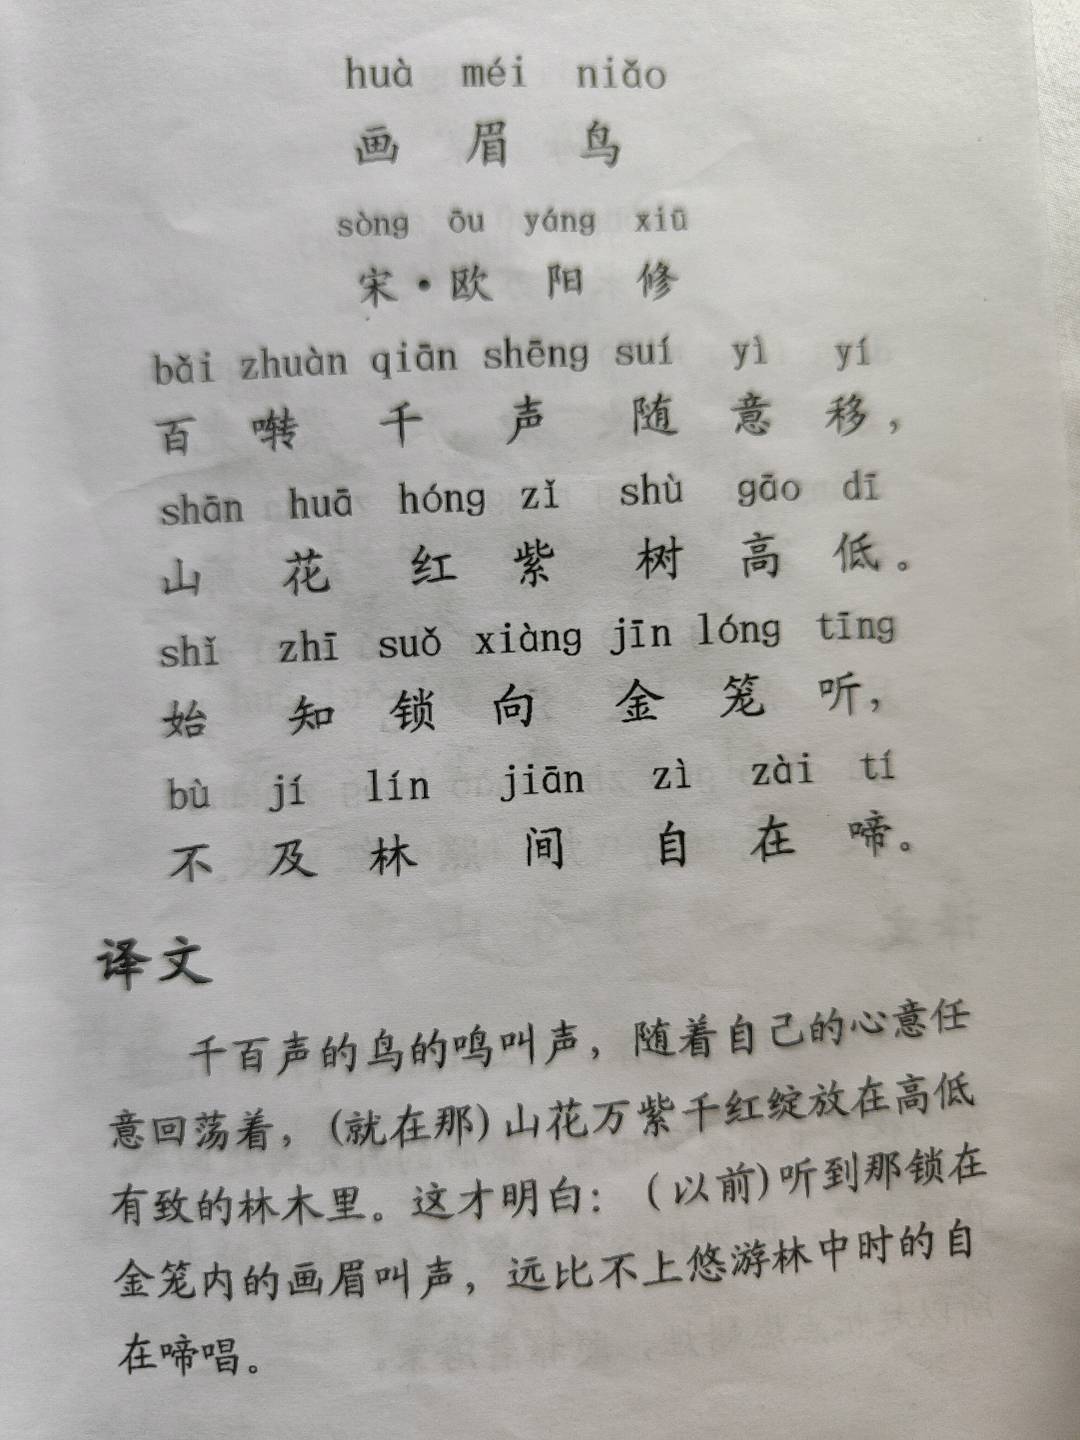 huà méi niǎo
画 眉 鸟
sòng ōu yáng xiū
宋·欧 阳 修
bǎi zhuàn qiān shēng suí yì yí
百 啭 千 声 随 意 移，
shān huā hóng zǐ shù gāo dī
山 花 红 紫 树 高 低。
shǐ zhī suǒ xiàng jīn lóng tīng
始 知 锁 向 金 笼 听，
bù jí lín jiān zì zài tí
不 及 林 间 自 在 啼。
译文
千百声的鸟的鸣叫声，随着自己的心意任
意回荡着，(就在那)山花万紫千红绽放在高低
有致的林木里。这才明白：(以前)听到那锁在
金笼内的画眉叫声，远比不上悠游林中时的自
在啼唱。